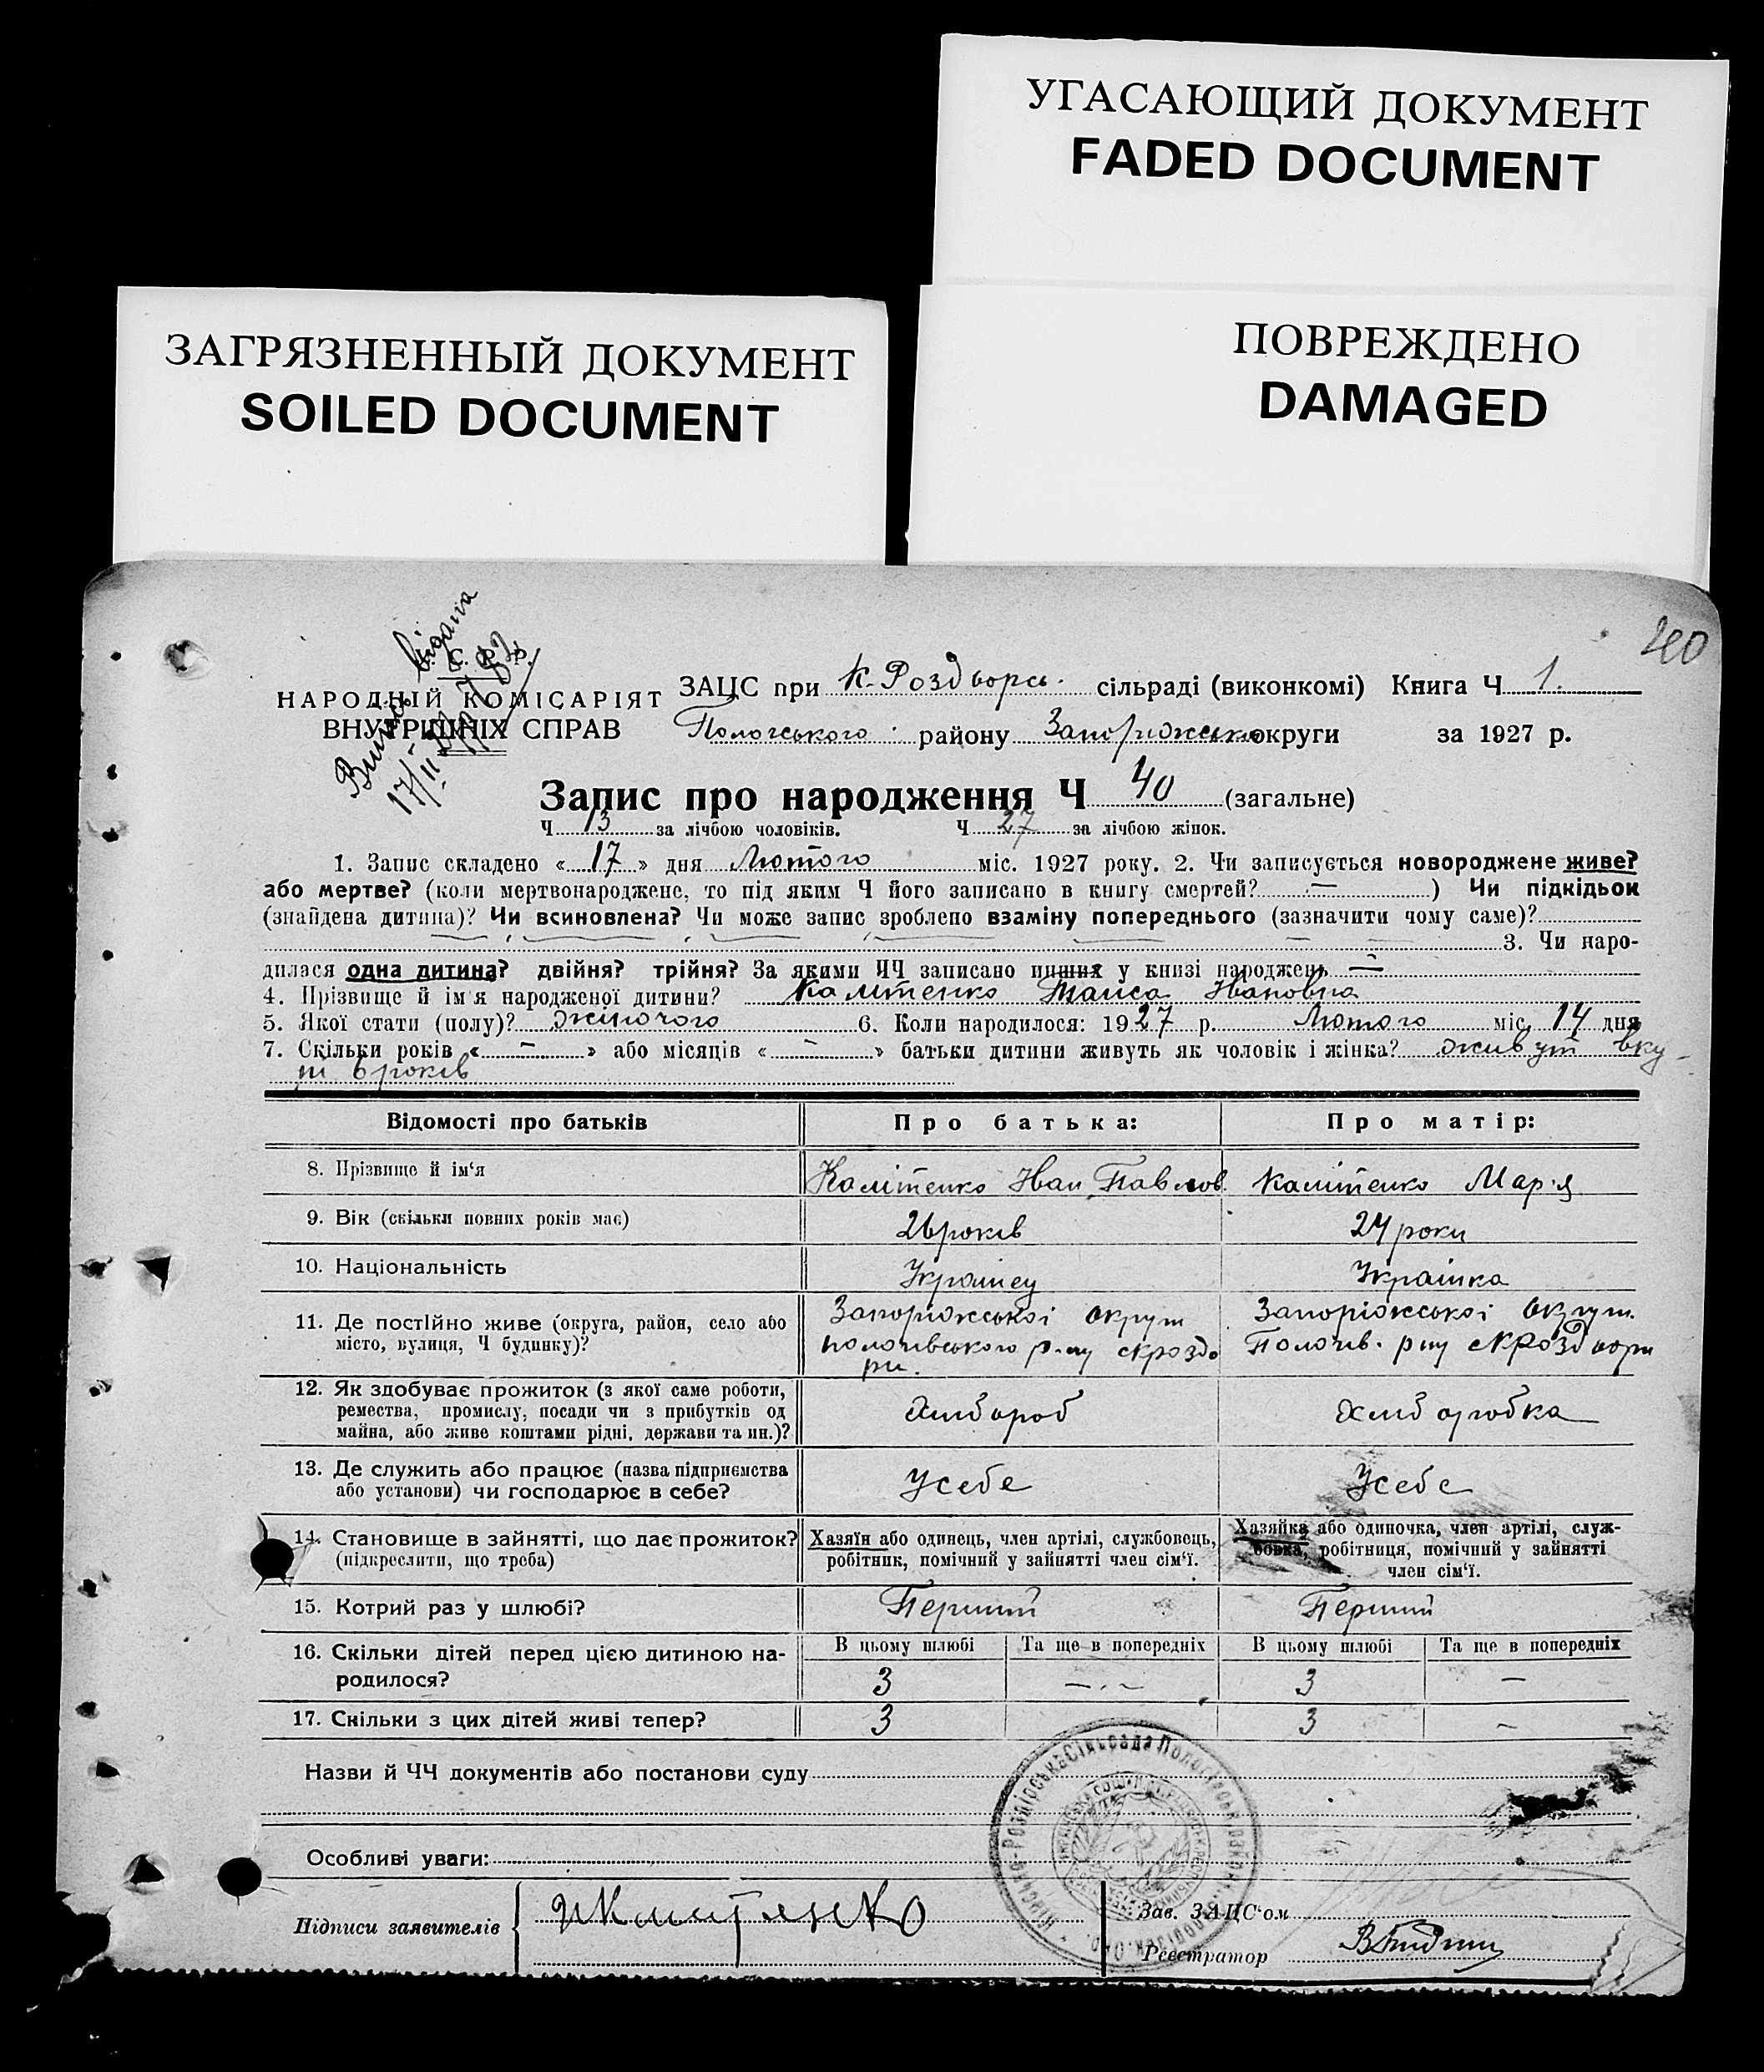 УГАСАЮЩИЙ ДОКУМЕНТ
FADED DOCUMENT
ЗАГРЯЗНЕННЫЙ ДОКУМЕНТ
SOILED DOCUMENT
ПОВРЕЖДЕНО
DAMAGED
240
Випис видана
17/II
С. Р. Р.
НАРОДНІЙ КОМІСАРІЯТ
ВНУТРІШНІХ СПРАВ
ЗАЦС при К-Роздорсь. сільраді (виконкомі) Книга Ч 1.
Пологського району Запоріжської округи за 1927 р.
Запис про народження Ч 40 (загальне)
Ч 13 за лічбою чоловіків. Ч 27 за лічбою жінок.
1. Запис складено « 17 » дня Лютого міс. 1927 року. 2. Чи записується новороджене живе?
або мертве? (коли мертвонароджене, то під яким Ч його записано в книгу смертей? — ) Чи підкідьок
(знайдена дитина)? Чи всиновлена? Чи може запис зроблено взаміну попереднього (зазначити чому саме)?
3. Чи наро-
дилася одна дитина? двійня? трійня? За якими ЧЧ записано инших у книзі народжень —
4. Прізвище й ім'я народженої дитини? Калітенко Таиса Ивановна
5. Якої стати (полу)? жіночого 6. Коли народилося: 1927 р. Лютого міс. 14 дня
7. Скільки років « — » або місяців « — » батьки дитини живуть як чоловік і жінка? живут вку-
пі 6 років
Відомості про батьків Про батька: Про матір:
8. Прізвище й ім'я Калітенко Иван Павлов. Калітенко Мар'я
9. Вік (скільки повних років має) 26 років 24 роки
10. Національність Українец Українка
11. Де постійно живе (округа, район, село або Запоріжської округи Запоріжської округи.
місто, вулиця, Ч будинку)? пологівського р-ну скроздо Пологів. рну скроздори
ри.
12. Як здобуває прожиток (з якої саме роботи,
ремества, промислу, посади чи з прибутків од Хлібороб Хліборобка
майна, або живе коштами рідні, держави та ин.)?
13. Де служить або працює (назва підприємства
або установи) чи господарює в себе? Усебе Усебе
14. Становище в зайнятті, що дає прожиток? Хазяїн або одинець, член артілі, службовець, Хазяйка або одиночка, член артілі, служ-
(підкреслити, що треба) робітник, помічний у зайнятті член сім'ї. бовка, робітниця, помічний у зайнятті
член сім'ї.
15. Котрий раз у шлюбі? Перший Перший
16. Скільки дітей перед цією дитиною на- В цьому шлюбі Та ще в попередніх В цьому шлюбі Та ще в попередніх
родилося? 3 — 3 —
17. Скільки з цих дітей живі тепер? 3 3 -
Назви й ЧЧ документів або постанови суду
Особливі уваги:
Підписи заявителів
Зав. ЗАЦС'ом
Реєстратор